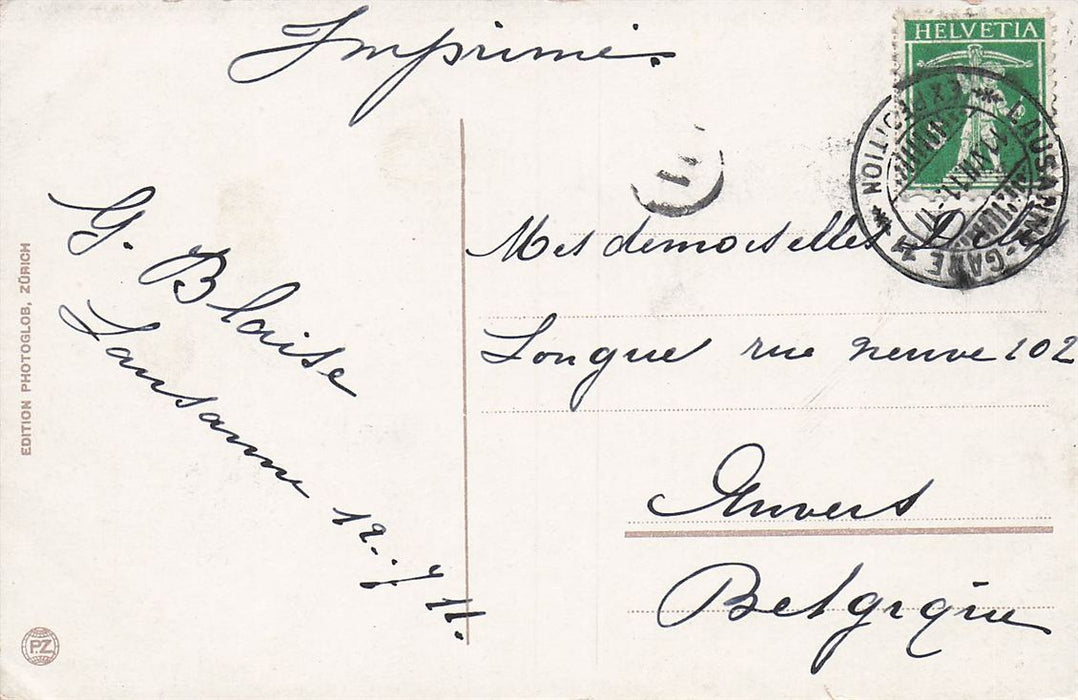 Imprimé.
HELVETIA
LAUSANNE-GARE
EXPEDITION
12.VII.11.-11
G. Blaise
Lausanne 12.-7 11.
Mesdemoiselles
Longue rue neuve 102
Anvers
Belgique
EDITION PHOTOGLOB, ZÜRICH
P.Z.